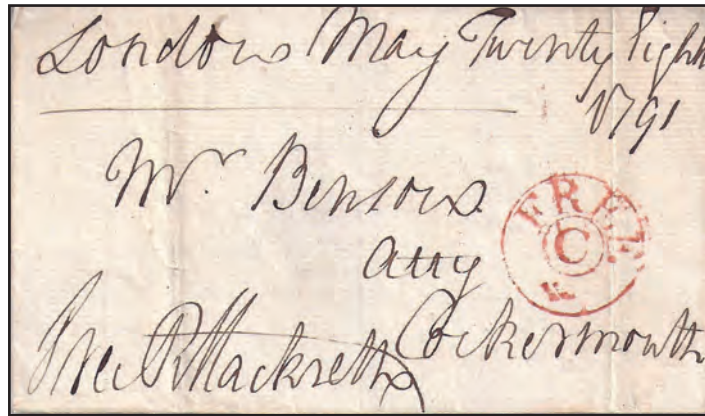 London May Twenty Eight
1791
Mr. Benson
Atty
Cockermouth
Free R Mackreth
FREE
C